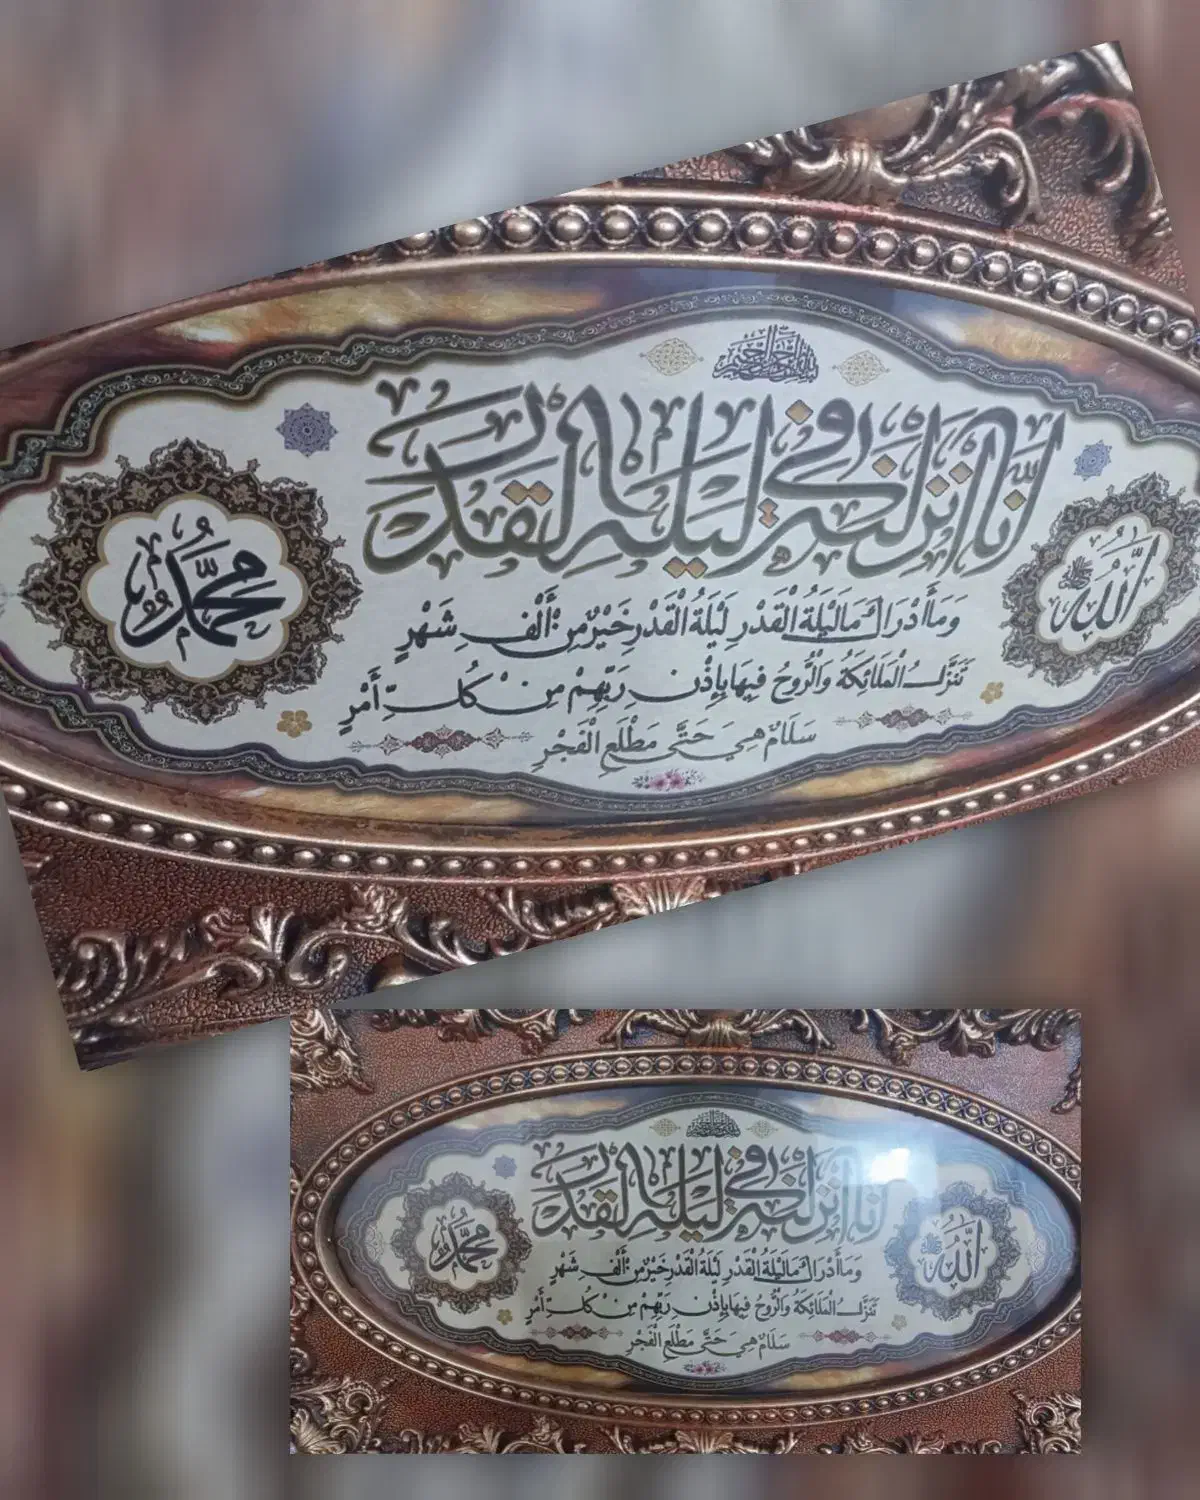 بسم الله الرحمن الرحيم
إنا أنزلنه في ليلة القدر
الله
محمد
وَمَا أَدْرَاكَ مَا لَيْلَةُ الْقَدْرِ لَيْلَةُ الْقَدْرِ خَيْرٌ مِنْ أَلْفِ شَهْرٍ
تَنَزَّلُ الْمَلَائِكَةُ وَالرُّوحُ فِيهَا بِإِذْنِ رَبِّهِمْ مِنْ كُلِّ أَمْرٍ
سَلَامٌ هِيَ حَتَّى مَطْلَعِ الْفَجْرِ
بسم الله الرحمن الرحيم
إنا أنزلنه في ليلة القدر
الله
محمد
وَمَا أَدْرَاكَ مَا لَيْلَةُ الْقَدْرِ لَيْلَةُ الْقَدْرِ خَيْرٌ مِنْ أَلْفِ شَهْرٍ
تَنَزَّلُ الْمَلَائِكَةُ وَالرُّوحُ فِيهَا بِإِذْنِ رَبِّهِمْ مِنْ كُلِّ أَمْرٍ
سَلَامٌ هِيَ حَتَّى مَطْلَعِ الْفَجْرِ